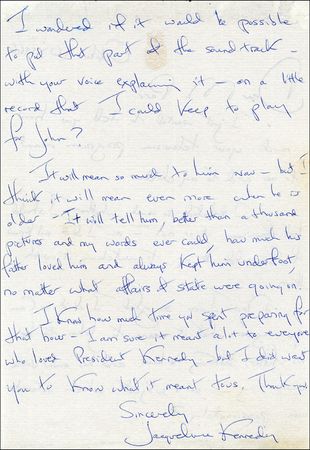 I wondered if it would be possible
to put that part of the sound track –
with your voice explaining it – on a little
record that I could keep to play
for John?
It will mean so much to him now – but I
think it will mean even more when he is
older – It will tell him, better than a thousand
pictures and my words ever could, how much his
father loved him and always kept him underfoot
no matter what affairs of state were going on.
I know how much time you spent preparing for
that hour – I am sure it meant a lot to everyone
who loved President Kennedy – but I did want
you to know what it meant to us. Thank you
Sincerely
Jacqueline Kennedy